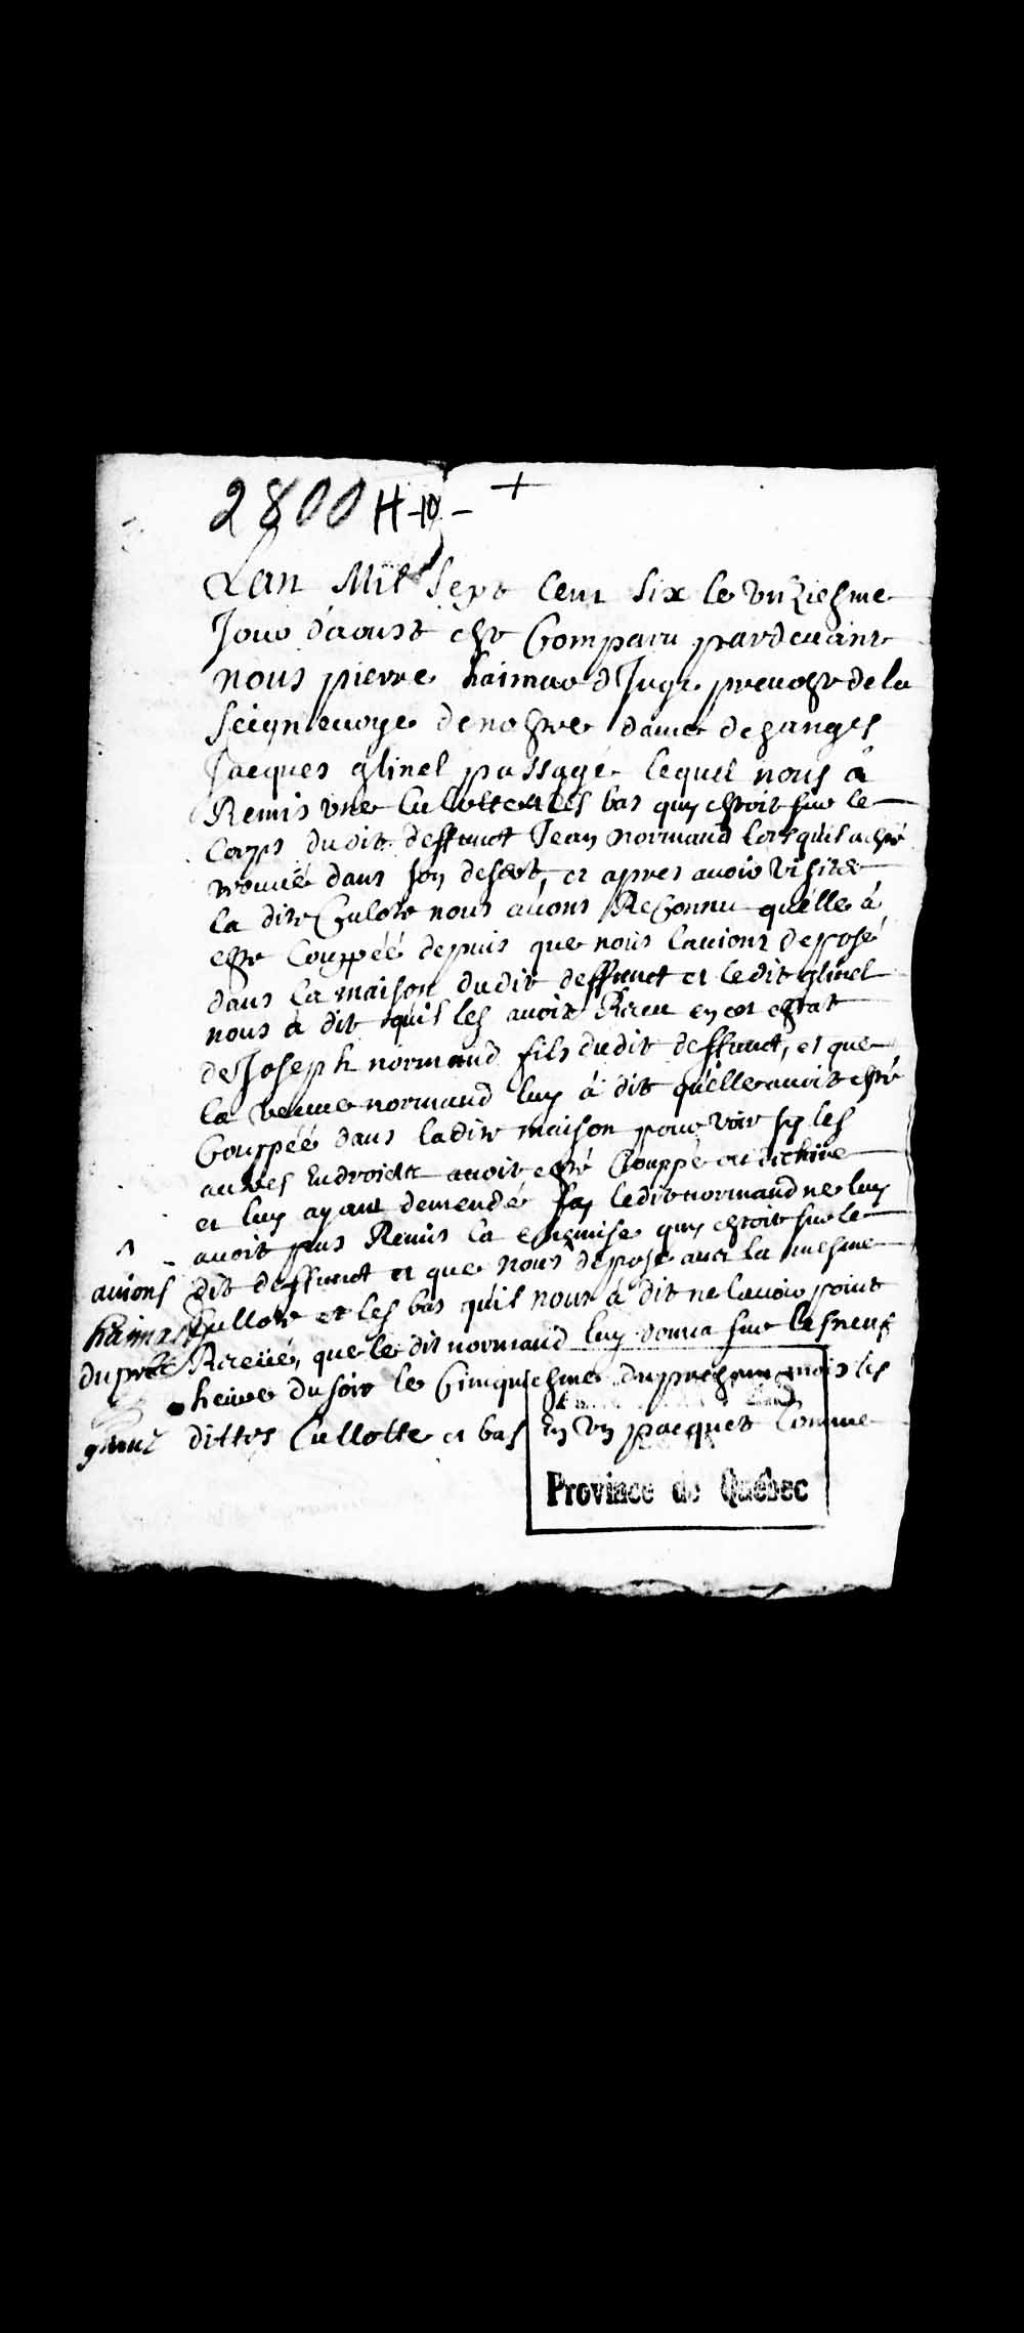 2800 H-10- +
Lan Mil sept Cent six le vnziesme
Jour d'aoust est Comparu pardeuant
nous pierre haimard Juge preuost de la
seigneurye de nostre dame des anges
Jacques glinel passagé lequel nous à
Remis vne Culotte et les bas quy estoit sur le
Corps dudit deffunct Jean normand lorsquil a esté
trouué dans son desert, et apres auoir visitée
la dite Culote nous auons Reconnu quélle à
esté Couppéé depuis que nous lauions deposé
dans la maison dudit deffunct et ledit glinel
nous a dit quil les auoit Receu en cet estat
de Joseph normand fils dudit deffunct, et que
la veuue normand luy à dit quélle auoit esté
Couppéé dans ladite maison pour voir sy les
autres Endroicts auoit esté Couppé ou dechiré
et luy ayant demendé sy ledit normand ne luy
auoit pas Remis la chemise quy estoit sur le
dit deffunct et que nous ^ deposé auec la mesme
Cullote et les bas quil nous à dit ne lauoir point
Receüe, que le dit normand luy donna sur les neuf
heure du soir le Cinquiesme du present mois les
dittes Cullotte et bas En vn pacquet Comme
^
auions
haimard
duprat
glinel
Province de Québec